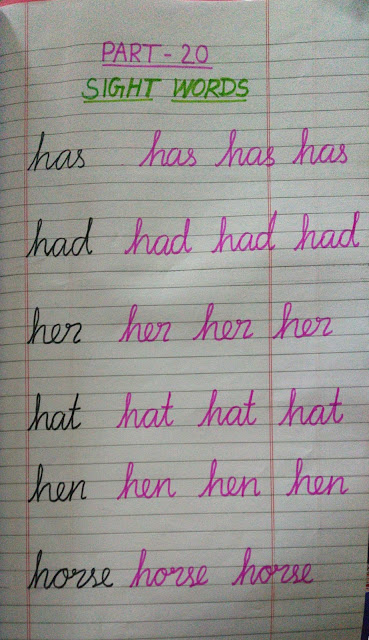 PART - 20
SIGHT WORDS
has has has has
had had had had
her her her her
hat hat hat hat
hen hen hen hen
horse horse horse